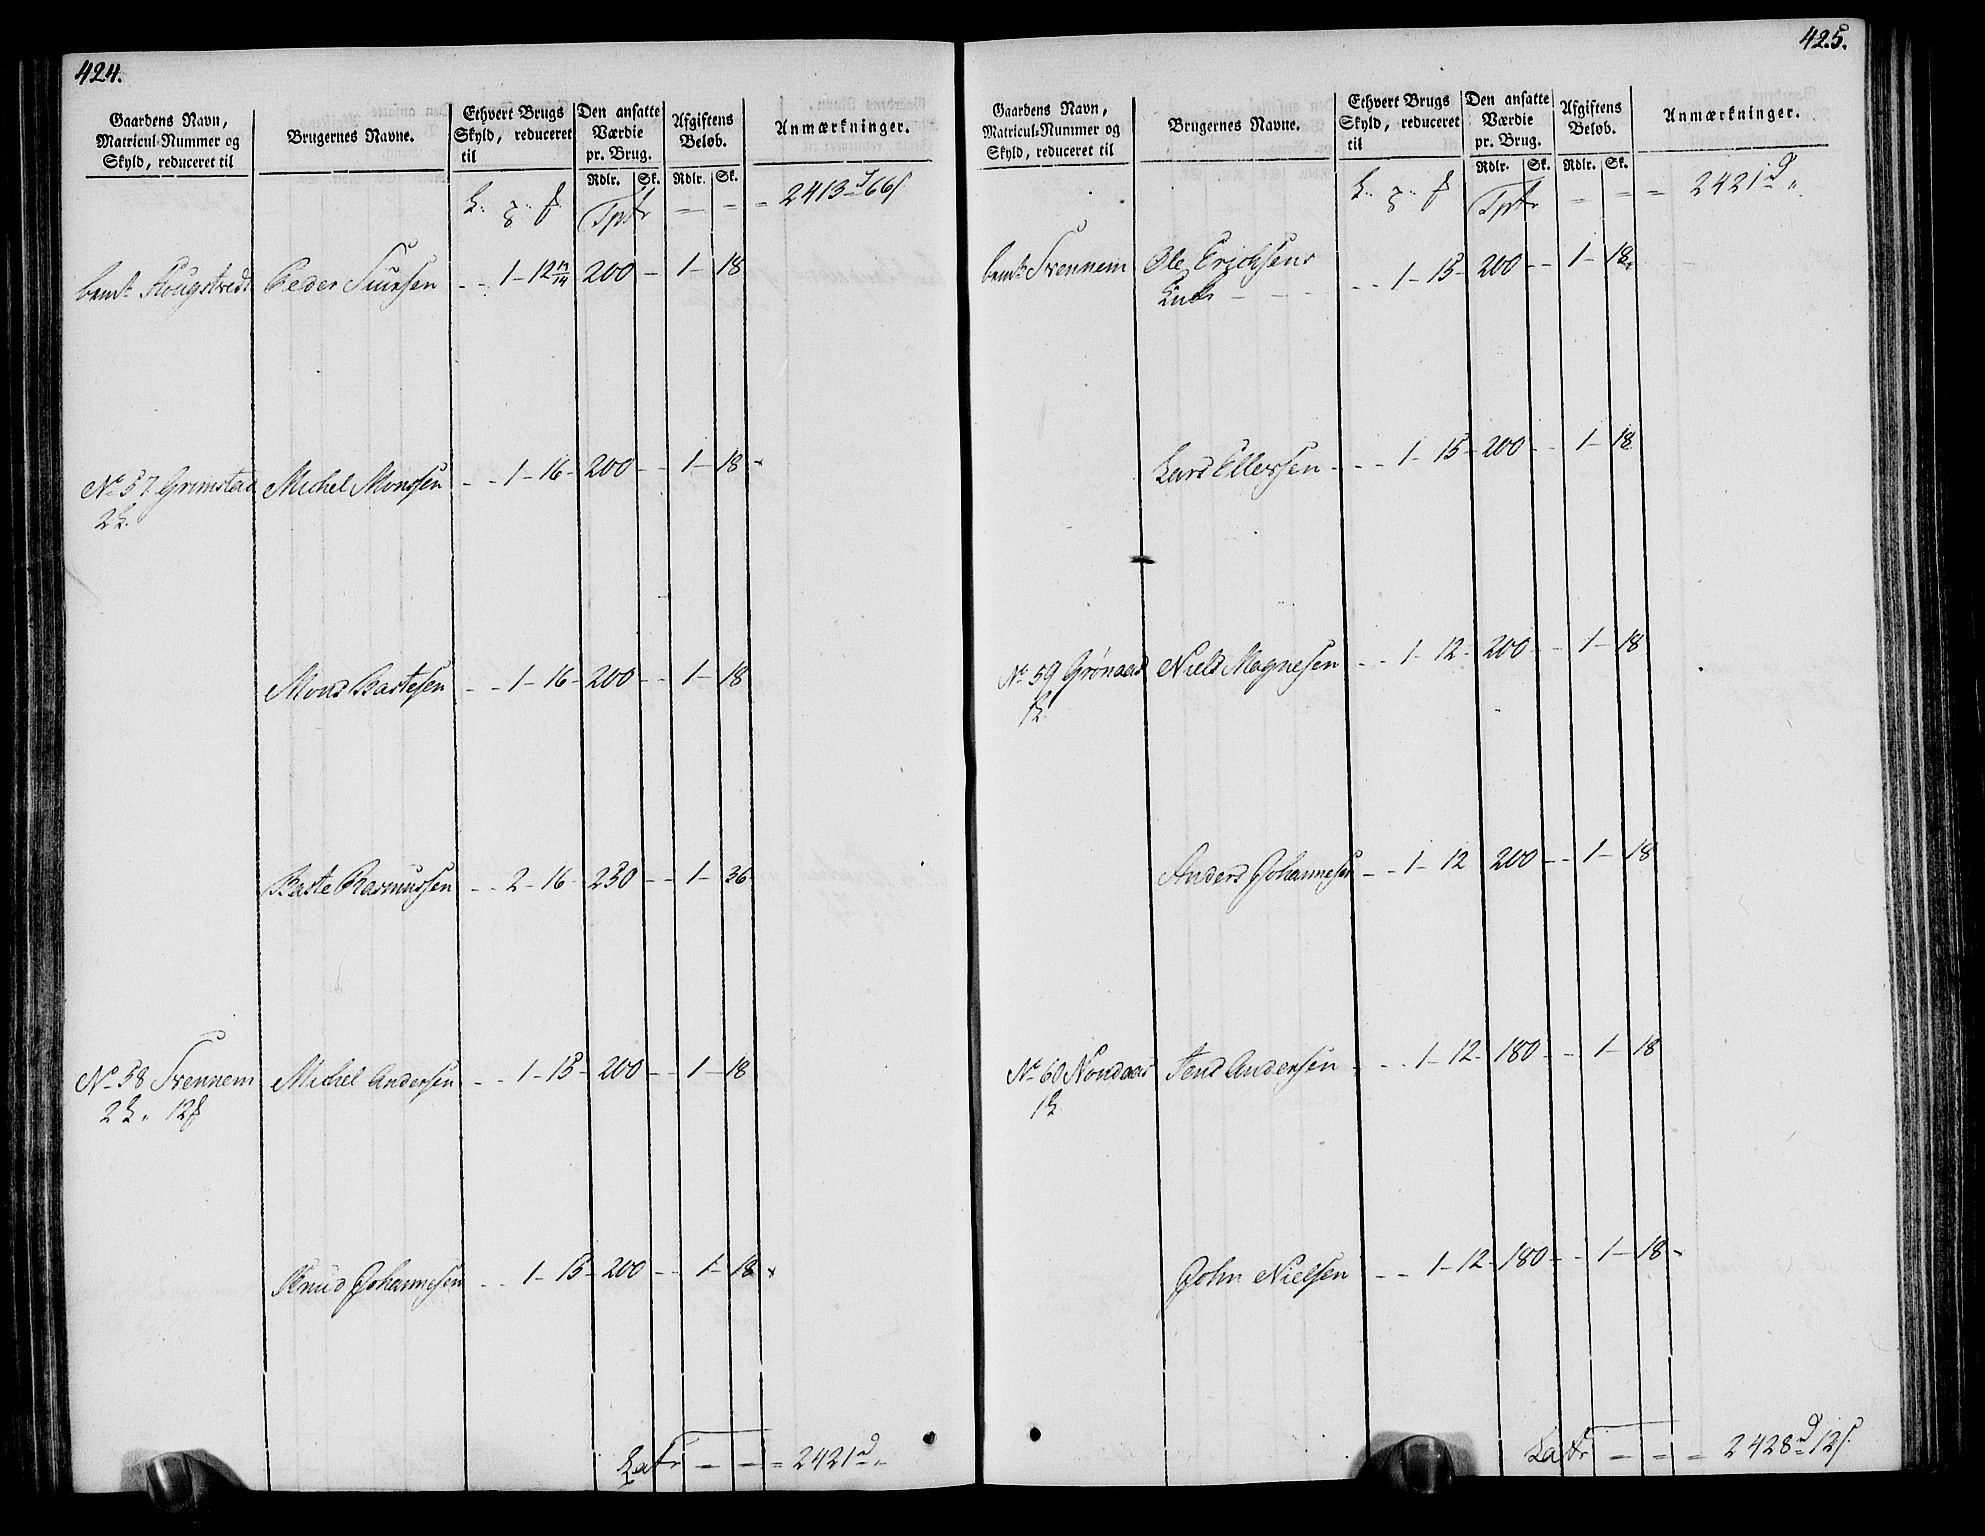 424.
Gaardens Navn,
Matricul-Nummer og
Skyld, reduceret til
Brugernes Navne.
Ethvert Brugs
Skyld, reduceret
til
Den ansatte
Værdie
pr. Brug.
Afgiftens
Beløb.
Anmærkninger.
Rdlr. Sk. Rdlr. Sk.
Tptr — — = 2413 d 66 s
Peder Siursen - - 1 - 12 11/14 200 - 1 - 18
No 57 Grimstad Michel Monssen - - 1 - 16 - 200 - - 1 - 18
2 L.
Mons Bastesen - - 1 - 16 - 200 - - 1 - 18
Baste Rasmussen - - 2 - 16 - 230 - - 1 - 36
No 58 Tvennem Michel Andersen - - 1 - 15 - 200 - - 1 - 18
2 L. " 12 f
Knud Johannesen - - 1 - 15 - 200 - - 1 - 18
Latr — — = 2421 d "
425.
Gaardens Navn,
Matricul-Nummer og
Skyld, reduceret til
Brugernes Navne.
Ethvert Brugs
Skyld, reduceret
til
Den ansatte
Værdie
pr. Brug.
Afgiftens
Beløb.
Anmærkninger.
Rdlr. Sk. Rdlr. Sk.
Tptr — — = 2421 d "
bemt Tvennem Ole Erichsens
Enke - - - - - 1 - 15 - 200 - - 1 - 18
Lars Ellersen - - - 1 - 15 - 200 - - 1 - 18
No 59 Grønaas Niels Magnesen - - 1 - 12 - 200 - - 1 - 18
1 L
Anders Johannesen - - 1 - 12 200 - - 1 - 18
No 60 Nondaas Jens Andersen - - - 1 - 12 - 180 - - 1 - 18
1 L
John Nielsen - - 1 - 12 - 180 - - 1 - 18
Latr — = = 2428 d 12 s.